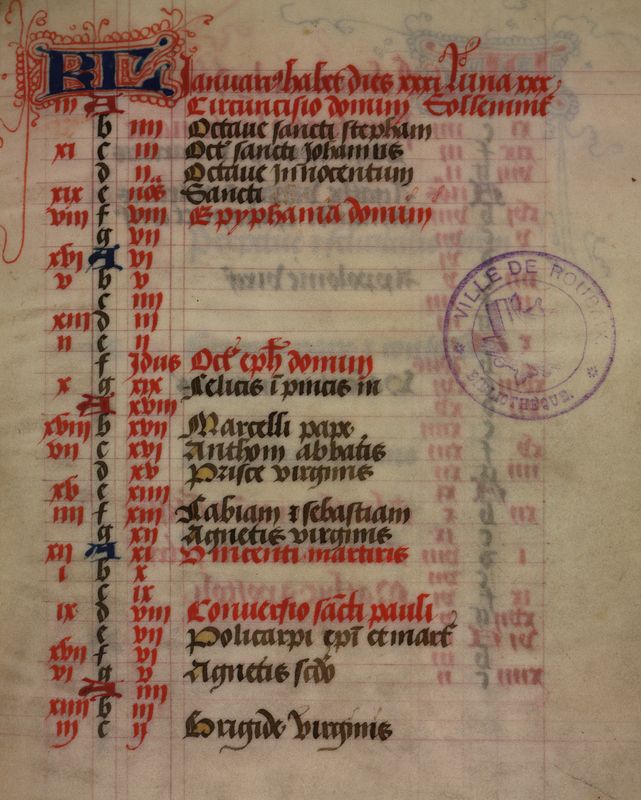 KL Januarius habet dies xxxi luna xxx
iii A Circuncisio domini Sollemnite
b iiii Octave sancti stephani
xi c iii Oct sancti Johannis
d ii Octave Innocentum
xix e nos Sancti
viii f viii Epyphania domini
g vii
xvi A vi
v b v
c iiii
xiii d iii
ii e ii
f Jdus Oct eph domini
x g xix Felicis i pincis m
A xviii
xviii b xvii Marcelli pape
vii c xvi Anthoni abbatis
d xv Prisce virginis
xv e xiiii
iiii f xiii Fabiani z sebastiani
g xii Agnetis virginis
xii A xi Vincenti martiris
i b x
c ix
ix d viii Conversio sancti pauli
e vii Policarpi epi et mart
xvii f vi
vi g v Agnetis scdo
A iiii
xiiii b iii
iii c ij Brigide virginis
VILLE DE ROUBAIX
BIBLIOTHEQUE